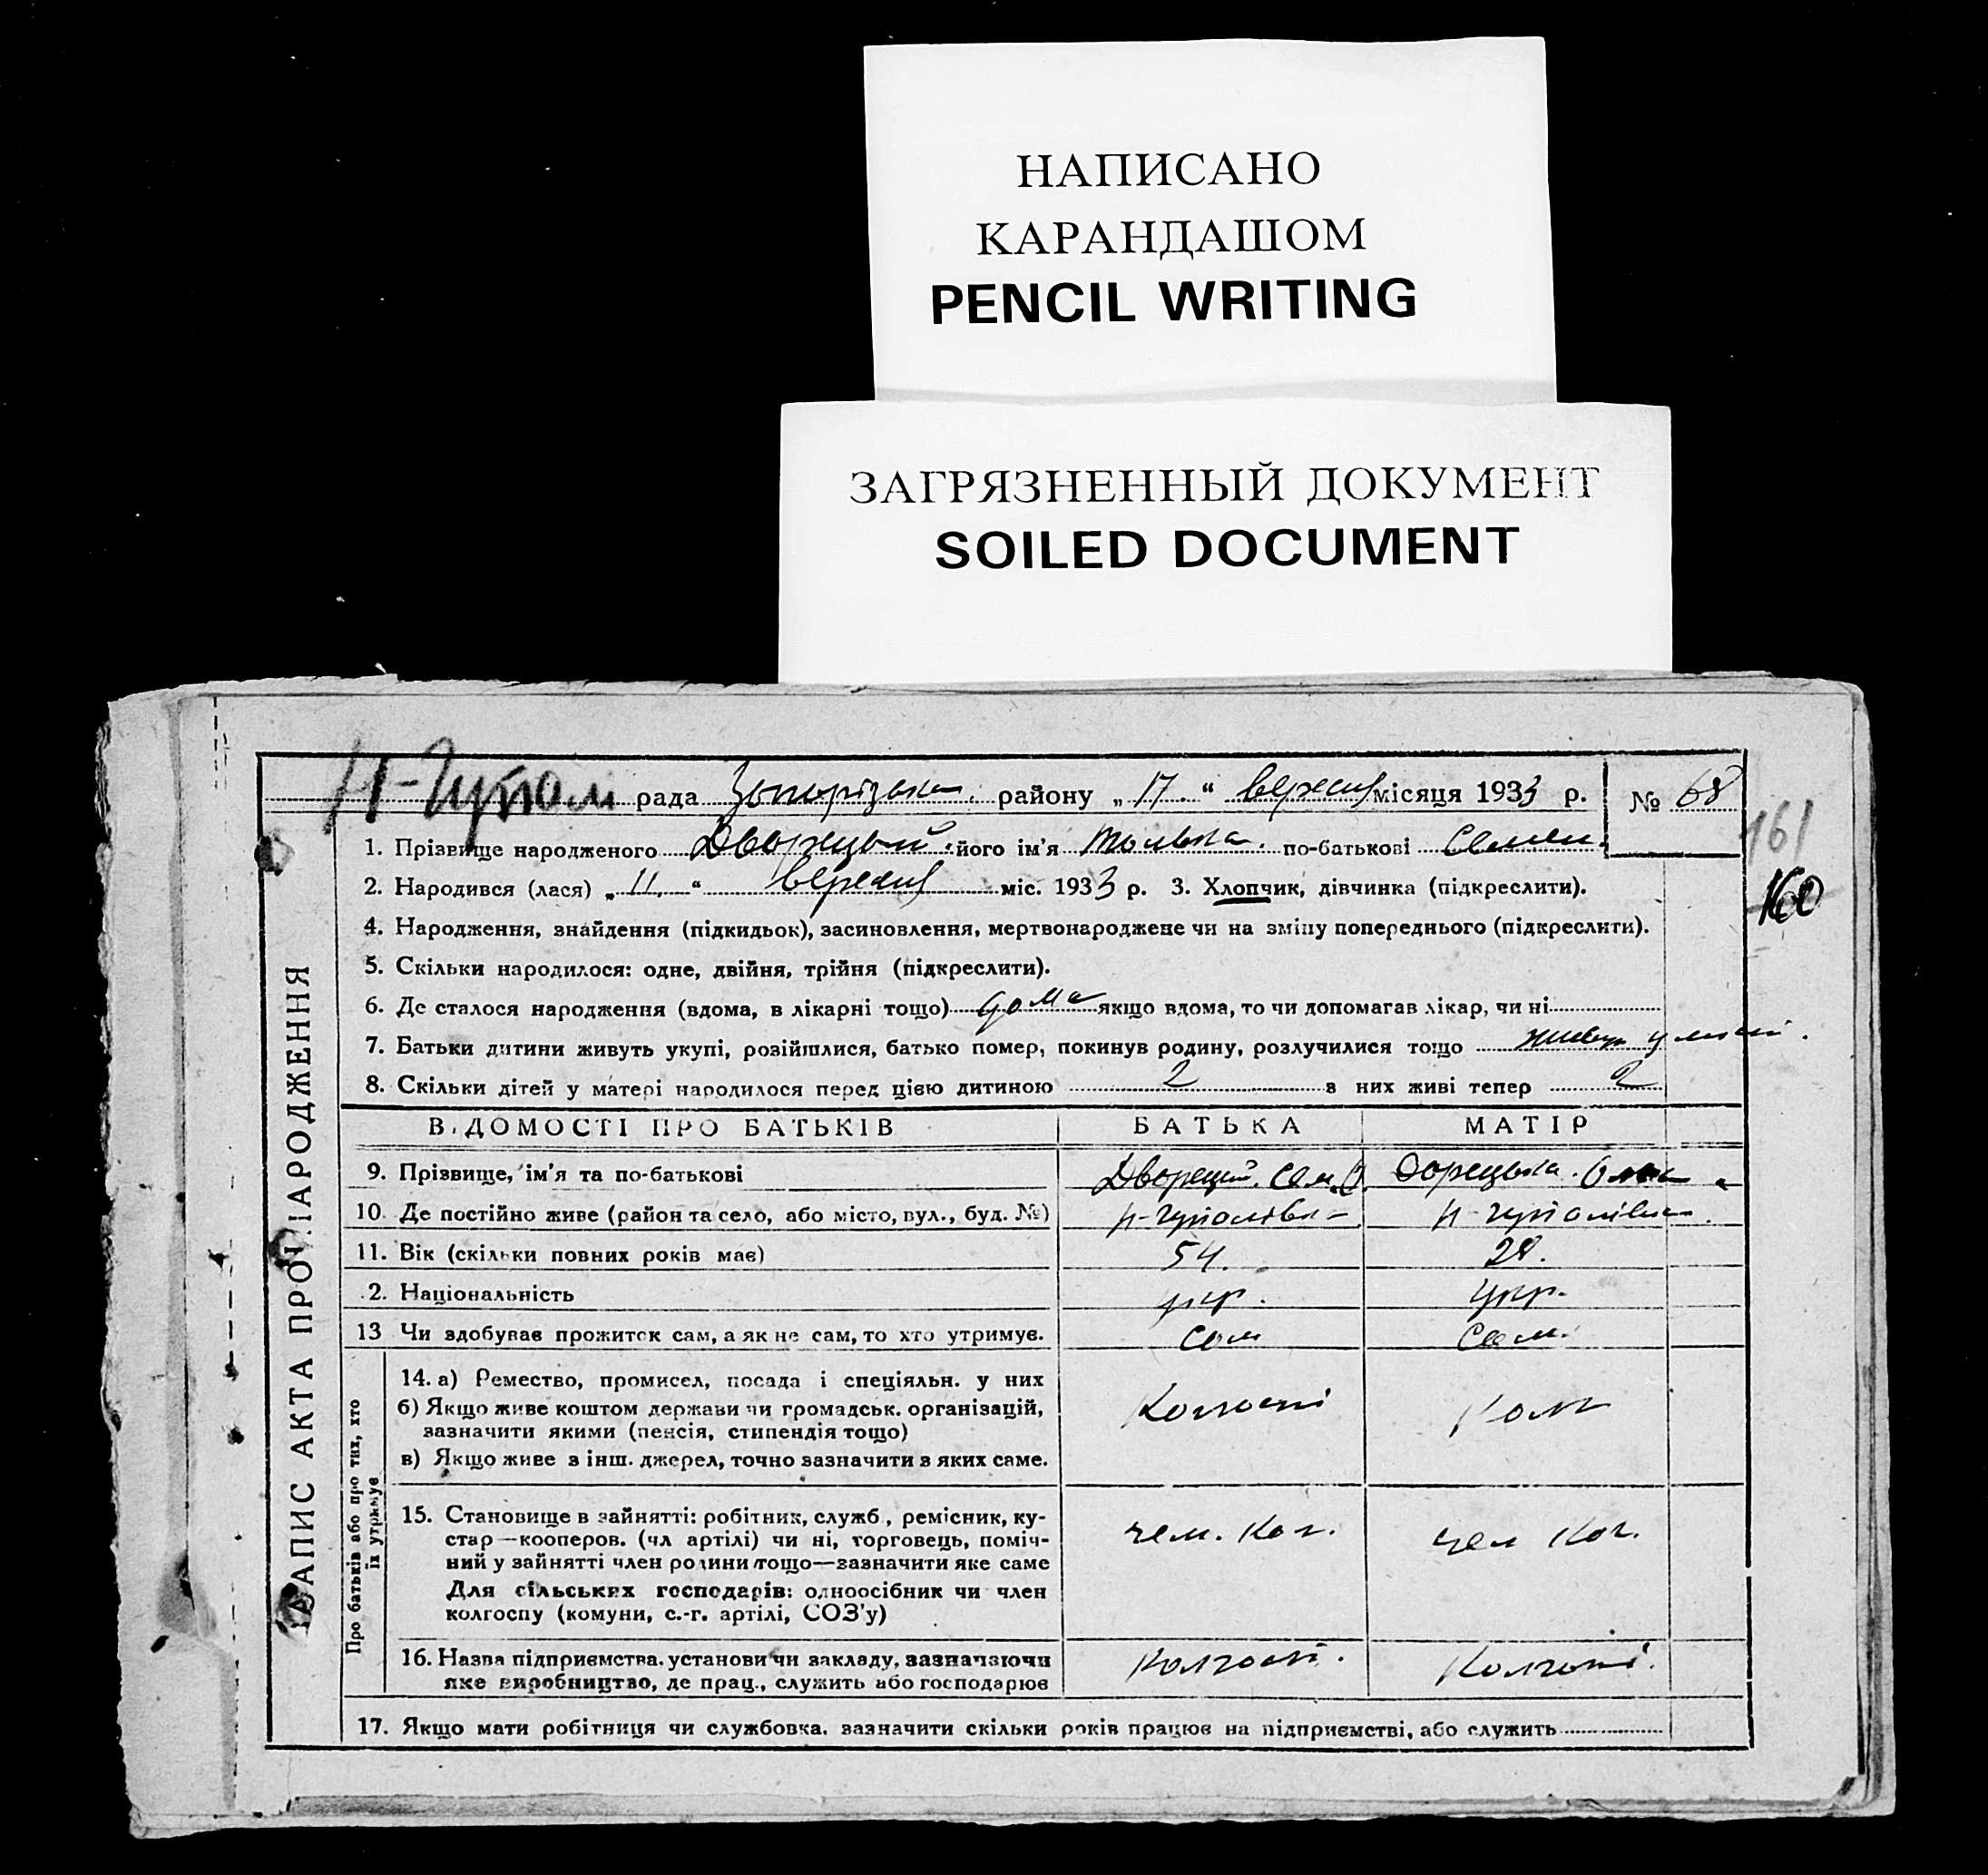 НАПИСАНО
КАРАНДАШОМ
PENCIL WRITING
ЗАГРЯЗНЕННЫЙ ДОКУМЕНТ
SOILED DOCUMENT
рада району „ 17. “ місяця 1933 р. № 68
1. Прізвище народженого Дворецький його ім'я по-батькові Семен.
161
2. Народився (лася) „ 11. “ міс. 1933 р. 3. Хлопчик, дівчинка (підкреслити).
160
4. Народження, знайдення (підкидьок), засиновлення, мертвонароджене чи на зміну попереднього (підкреслити).
5. Скільки народилося: одне, двійня, трійня (підкреслити).
6. Де сталося народження (вдома, в лікарні тощо) дома якщо вдома, то чи допомагав лікар, чи ні
7. Батьки дитини живуть укупі, розійшлися, батько помер, покинув родину, розлучилися тощо живут
8. Скільки дітей у матері народилося перед цією дитиною 2 з них живі тепер 2
ВІДОМОСТІ ПРО БАТЬКІВ БАТЬКА МАТІР
9. Прізвище, ім'я та по-батькові Сем.
10. Де постійно живе (район та село, або місто, вул., буд. №)
11. Вік (скільки повних років має) 54. 28.
2. Національність укр. укр.
13 Чи здобував прожиток сам, а як не сам, то хто утримує. Сам Сам.
14. а) Ремество, промисел, посада і спеціяльн. у них
б) Якщо живе коштом держави чи громадськ. організацій,
зазначити якими (пенсія, стипендія тощо)
в) Якщо живе з інш. джерел, точно зазначити з яких саме.
15. Становище в зайнятті: робітник, служб., ремісник, ку-
стар—кооперов. (чл артілі) чи ні, торговець, поміч-
ний у зайнятті член родини тощо—зазначити яке саме
Для сільських господарів: одноосібник чи член
колгоспу (комуни, с.-г. артілі, СОЗ'у)
чем. Кол. чел Кол.
16. Назва підприємства, установи чи закладу, зазначаючи
яке виробництво, де прац., служить або господарює
17. Якщо мати робітниця чи службовка, зазначити скільки років працює на підприємстві, або служить
ЗАПИС АКТА ПРО НАРОДЖЕННЯ
Про батьків або про тих, хто
їх утримує